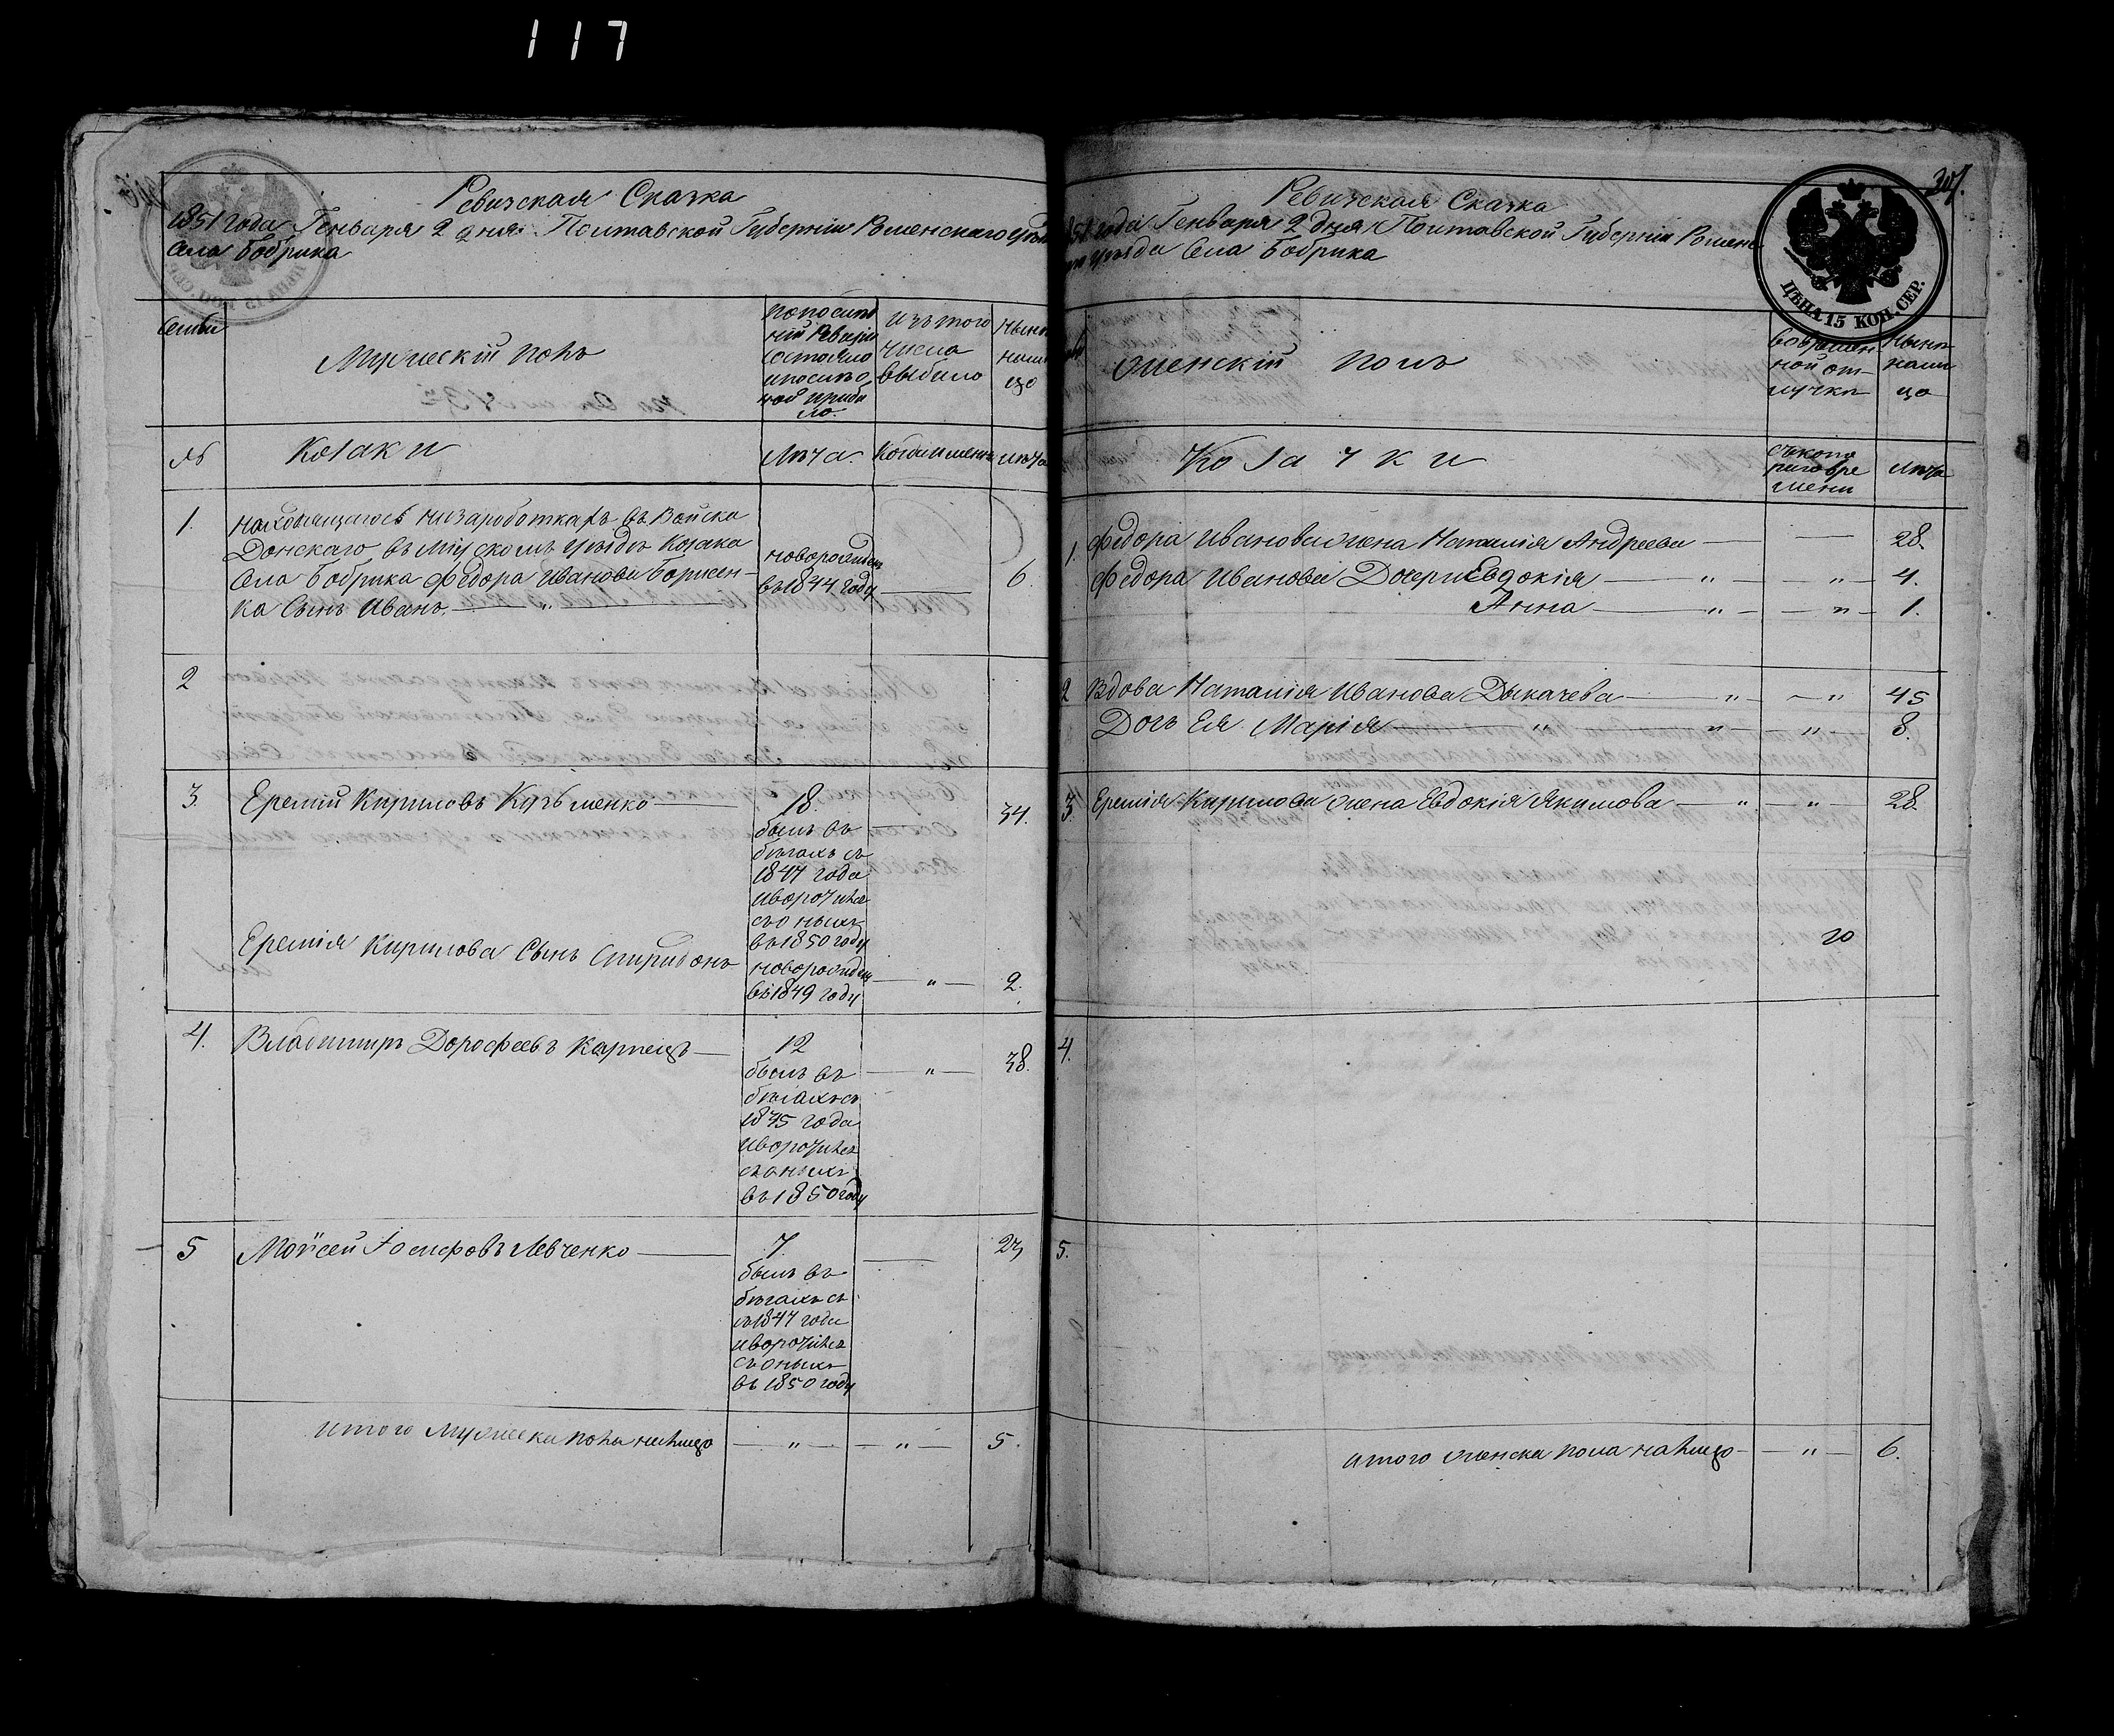 117
Ревизская Сказка
1851 года Генваря 2 дня Полтавской Губерніи Роменскаго уѣзда
села Бобрика
семьи
Мужескій полъ
По послѣд
ній Ревизіи
состояло
и послѣ о
ной прибы
ло.
изъ того
числа
выбыло
Нынѣ
нали
цо
№
Козаки
Лѣта.
Когда именно
лѣта
1.
находящагось на заработкахъ въ Войска
Донскаго въ Міускомъ уѣздѣ Козака
села Бобрика Федора Иванова Борисен-
ка Сынъ Иванъ. — " —
новорожденъ
въ 1844 году
6.
2
3.
Еремій Кириловъ Кузьменко —
18.
былъ въ
бѣгахъ съ
1847 года
и воротился
съ оныхъ
въ 1850 году
34.
Еремія Кирилова Сынъ Спиридонъ
новорожденъ
въ 1849 году
— " —
2.
4.
Владимиръ Дорофеевъ Карпецъ —
12
былъ въ
бѣгахъ съ
1845 года
и воротился
съ оныхъ
въ 1850 году
— " —
38.
5
Моѵсей Іосифовъ Левченко —
7.
былъ въ
бѣгахъ съ
съ 1847 года
и воротился
съ оныхъ
въ 1850 году
23
итого Мужеска пола налицо — " — — " — 5.
307.
Ревизская Сказка
1851 года Генваря 2 дня Полтавской Губерніи Роменс-
каго уѣзда Села Бобрика
ЦѢНА 15 КОП. СЕР.
женскій полъ
во времен-
ной от-
лучкѣ
Нынѣ
нали
цо
Козачки
съ кото
раго вре
мени
лѣта
1. Федора Иванова жена Наталія Андреева — — 28.
Федора Иванова Дочери Евдокія — " — — " — 4.
Анна — " — — " — 1.
2 Вдова Наталія Иванова Дыкачева — " — — " 45
Дочь Ея Марія — " — " — " — 8.
3. Еремія Кирилова жена Евдокія Якимова — " — " — 28.
20
4.
5.
итого женска пола налицо — — " — 6.